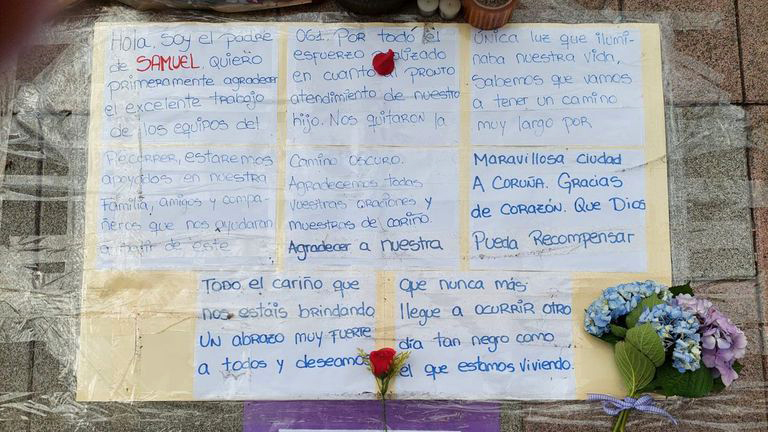 Hola. Soy el padre
de SAMUEL. QUIERO
primeramente agradecer
el excelente trabajo
de los equipos del
061. POR todo el
esfuerzo realizado
en cuanto al pronto
atendimiento de nuestro
hijo. Nos quitaron la
única luz que ilumi-
naba nuestra vida,
Sabemos que vamos
a tener un camino
muy largo por
Recorrer, estaremos
apoyados en nuestra
familia, amigos y compa-
ñeros que nos ayudaran
a partir de este
Camino oscuro.
Agradecemos todas
vuestras oraciones y
muestras de cariño.
Agradecer a nuestra
Maravillosa ciudad
A Coruña. Gracias
de corazón. Que Dios
Pueda Recompensar
Todo el cariño que
nos estáis brindando
UN abrazo muy fuerte
a todos y deseamos
que nunca más
llegue a ocurrir otro
día tan negro como
el que estamos viviendo.